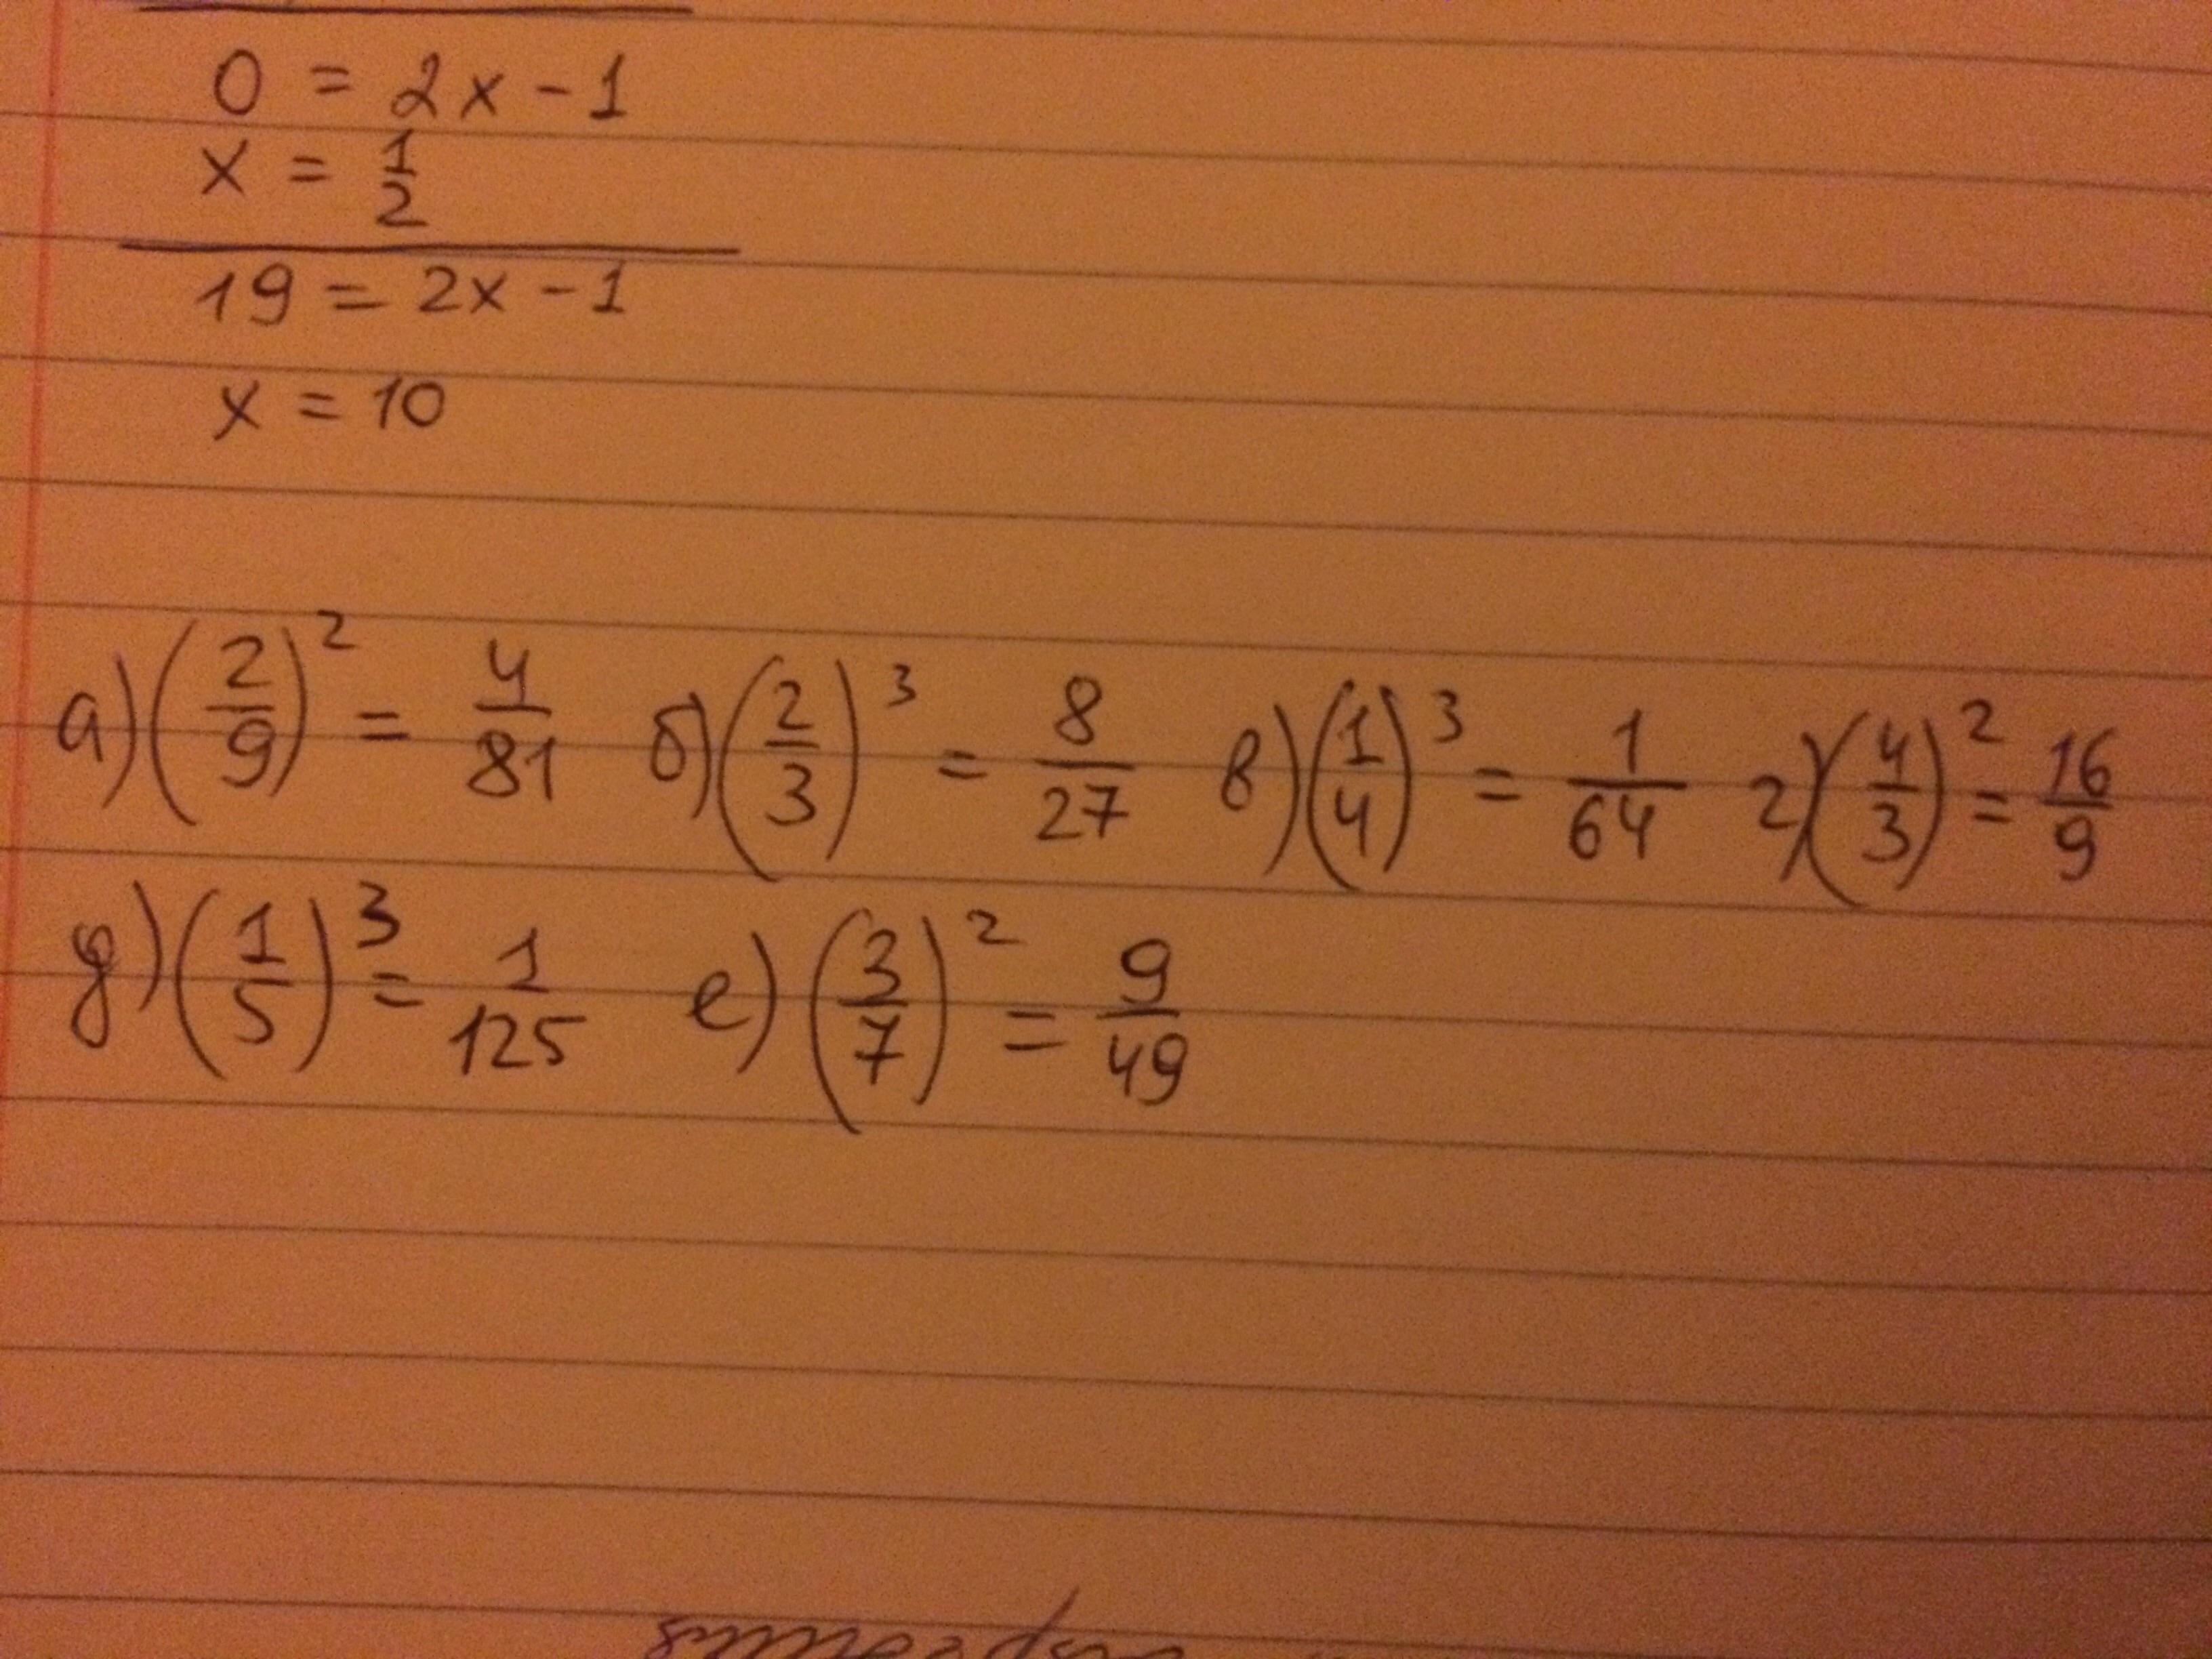 0 = 2x - 1
x = 1/2
19 = 2x - 1
x = 10
а) (2/9)² = 4/81 б) (2/3)³ = 8/27 в) (1/4)³ = 1/64 г) (4/3)² = 16/9
д) (1/5)³ = 1/125 е) (3/7)² = 9/49